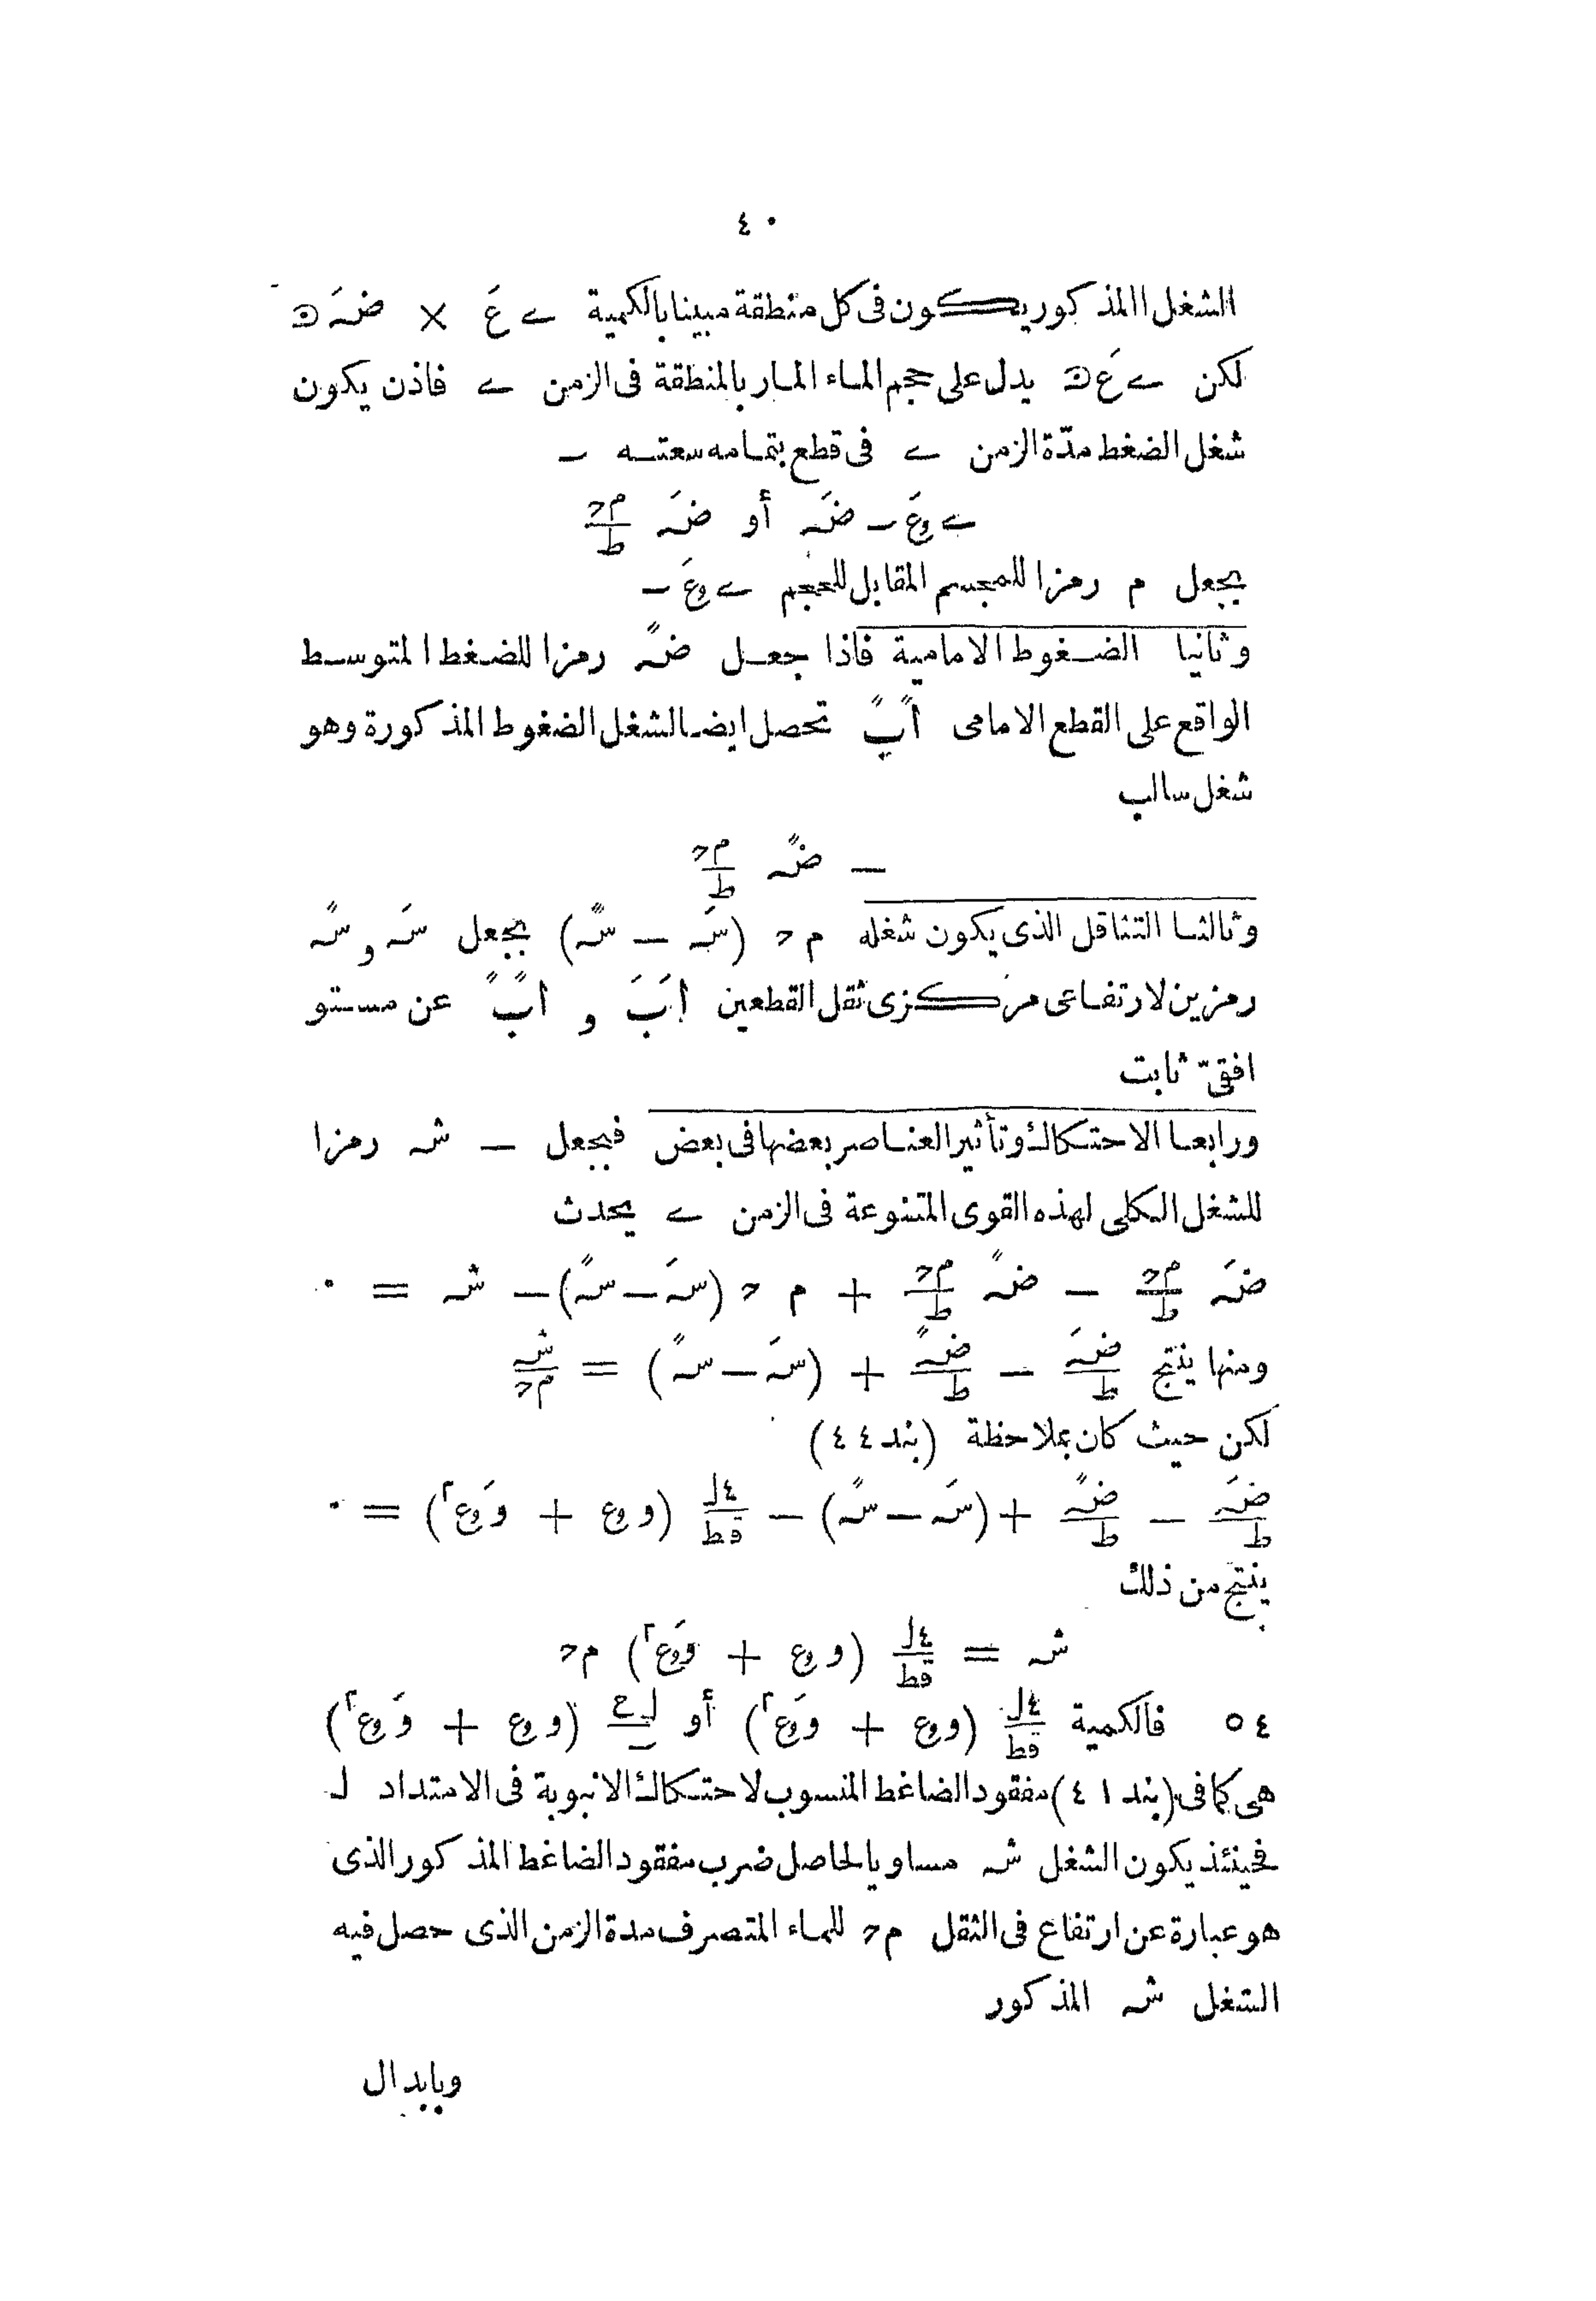 ٤٠
الشغل المذكور يكون فى كل منطقة مبينا بالكمية ے عَ × ضہَ
لكن ے عَ يدل على حجم الماء المار بالمنطقة فى الزمن ے فاذن يكون
شغل الضغط مدّة الزمن ے فى قطع بتمامه سعته ـ
ے وعَ ـ ضہَ أو ضہَ م؟/ط
بجعل م رمزا للمجسم المقابل للحجم ے وعَ ـ
وثانيا الضغوط الامامية فاذا جعل ضہً رمزا للضغط المتوسط
الواقع على القطع الامامى اًبً تحصل ايضا لشغل الضغوط المذكورة وهو
شغل سالب
— ضہً م؟/ط
وثالثا التثاقل الذى يكون شغله م؟ (سہَ — سہً) بجعل سہَ و سہً
رمزين لارتفاعى مركزى ثقل القطعين اَبَ و اًبً عن مستو
افقىّ ثابت
ورابعا الاحتكاك وتأثير العناصر بعضها فى بعض فبجعل — شہ رمزا
للشغل الكلى لهذه القوى المتنوعة فى الزمن ے يحدث
ضہَ م؟/ط — ضہً م؟/ط + م؟ (سہَ — سہً) — شہ = ٠
ومنها ينتج ضہَ/ط — ضہً/ط + (سہَ — سہً) = شہ/م؟
لكن حيث كان بملاحظة (بند ٤٤)
ضہَ/ط — ضہً/ط + (سہَ — سہً) — ٤ل/قط (و وع + وَ وع٢) = ٠
ينتج من ذلك
شہ = ٤ل/قط (و وع + وَ وع٢) م؟
٤٥ فالكمية ٤ل/قط (و وع + وَ وع٢) أو ل ع/ـ (و وع + وَ وع٢)
هى كما فى (بند ٤١) مفقود الضاغط المنسوب لاحتكاك الانبوبة فى الامتداد ل
فحينئذ يكون الشغل شہ مساويا لحاصل ضرب مفقود الضاغط المذكور الذى
هو عبارة عن ارتفاع فى الثقل م؟ للماء المتصرف مدة الزمن الذى حصل فيه
الشغل شہ المذكور
وبابدال